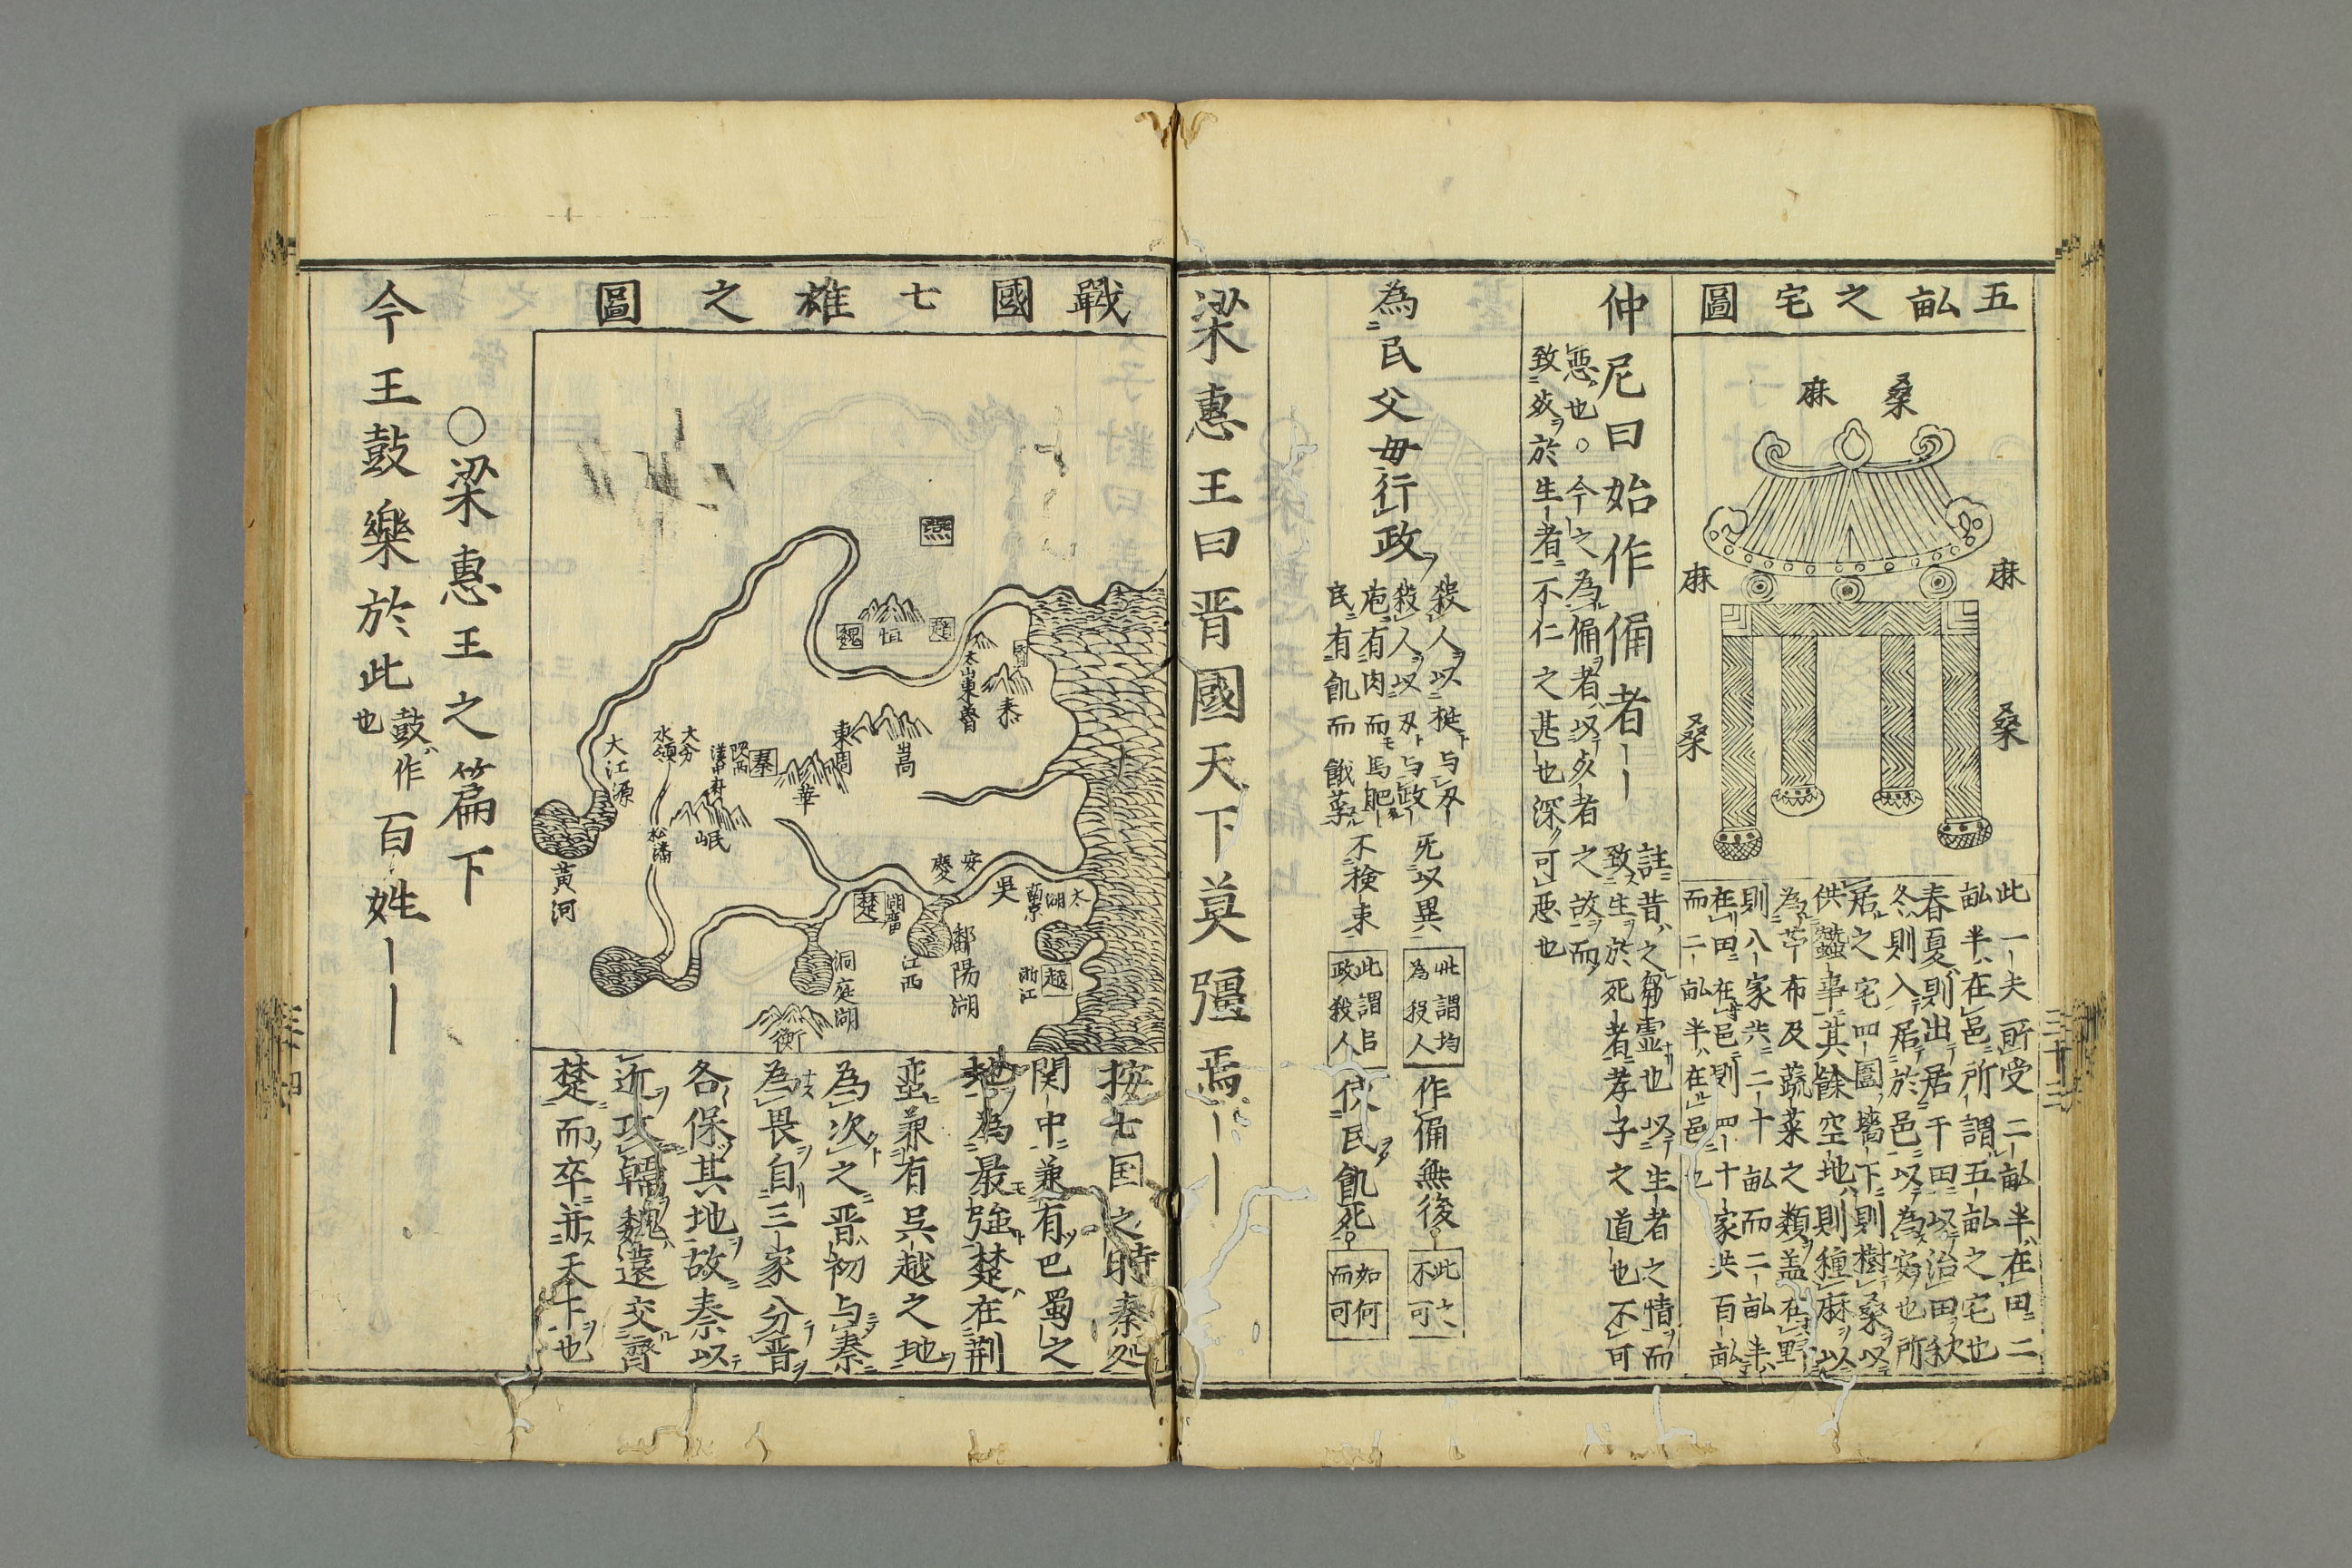 五畒之宅圖
桑
麻
麻
麻
桑
桑
此一夫所受二畒半在田二
畒半在邑所謂五畒之宅也
春夏則出居于田以治田秋
冬則入居於邑以為安也所
居之宅四圍墻下則樹桑以
供蠶事其餘空地則種麻以
為苧布及蔬菜之類盖在野
則八家共二十畒而二畒半
在田在邑則四十家共百畒
而二畒半在邑也
仲尼曰始作俑者――
註昔之芻霊也以生者之情而
致生於死者孝子之道也不可
悪也○今之為俑者以夕者之故而
致死於生者不仁之甚也深可悪也
為民父母行政
殺人以梃与刃 旡以異 此謂均為殺人 作俑無後 此之不可
殺人以刃与政
庖有肉而馬肥
民有飢而餓莩 不検束 此謂㠯政殺人 使民飢死 如何而可
梁惠王曰晋國天下莫彊焉――
三十三
戰國七雄之圖
燕
趙
恒
魏
太山東魯
泰
嵩
東周
華
秦
陝西
漢中府
大分水嶺
大江源
岷
松潘
黄河
安慶
吳
南京
太湖
楚
湖廣
鄱陽湖
江西
越
浙江
洞庭湖
衡
按七国之時秦処
関中兼有巴蜀之
地為最強楚在荆
蛮兼有呉越之地
為次之晋初与秦
為畏自三家分晋
各保其地故秦以
近攻韓魏遠交齊
楚而卒并天下也
○梁惠王之篇下
今王鼓樂於此 鼓作也 百姓――
三十四